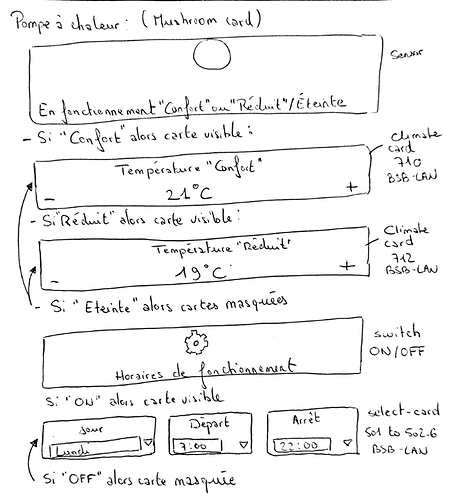 Pompe à chaleur : (Mushroom card)
Sensor
En fonctionnement "Confort" ou "Réduit"/Éteinte
- Si "Confort" alors carte visible :
Climate
card
710
BSB-LAN
Température "Confort"
- 21°C +
- Si "Réduit" alors carte visible :
Climate
card
712
BSB-LAN
Température "Réduit"
- 19°C +
- Si "Eteinte" alors cartes masquées
switch
ON/OFF
Horaires de fonctionnement
Si "ON" alors carte visible
select-card
501 to 502.6
BSB-LAN
Jour
Lundi
Départ
7:00
Arrêt
22:00
Si "OFF" alors carte masquée